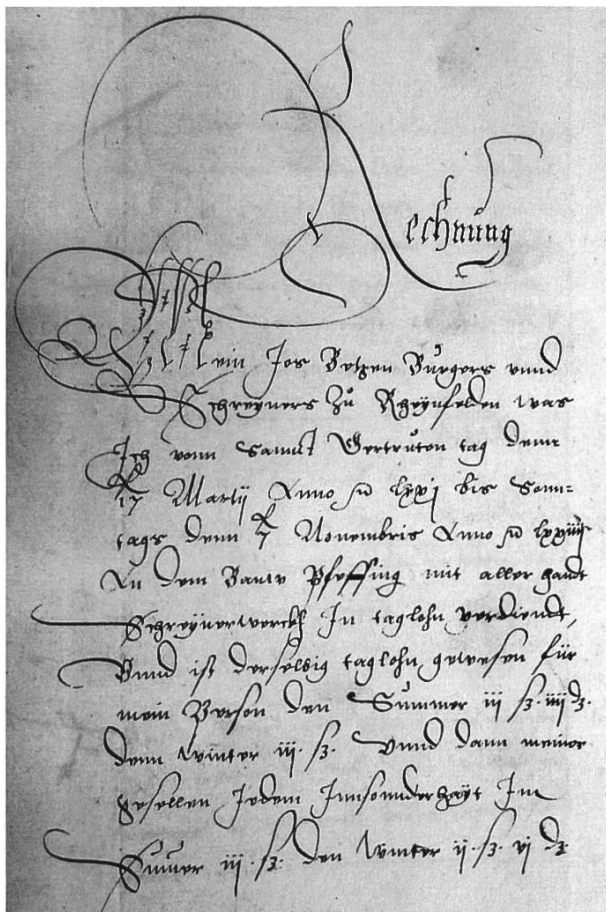 Rechnung
Mein Jos Betzen Burgers vnnd
Schreyners Zů Rheynfelden was
Ich vonn Sannct Gertruten tag denn
17 Martij Anno lxxj bis Sonn=
tags denn 7 Novembris Anno lxxiiij
An dem Bauw Pfeffing mit aller handt
Schreynerwerckh In taglohn verdiendt,
Vnnd ist derselbig taglohn gewesen für
mein Person den Summer iii ß. iiij d.
denn winter iii. ß. Vnnd dann meiner
gesellen Jedem Innsonderhayt Im
Sum̄er iii. ß. den winter ii. ß. vj d.